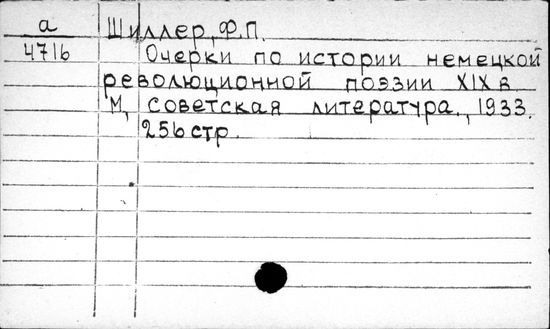 а Шиллер, Ф.П.
4716 Очерки по истории немецкой
революционной поэзии XIX в.
М, советская литература., 1933.
256 стр.